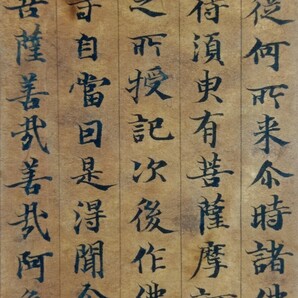 從何所来尒時諸佛
待須臾有菩薩摩訶
之所授記次後作佛
皆自當因是得聞尒
菩薩善㢤善㢤阿逸